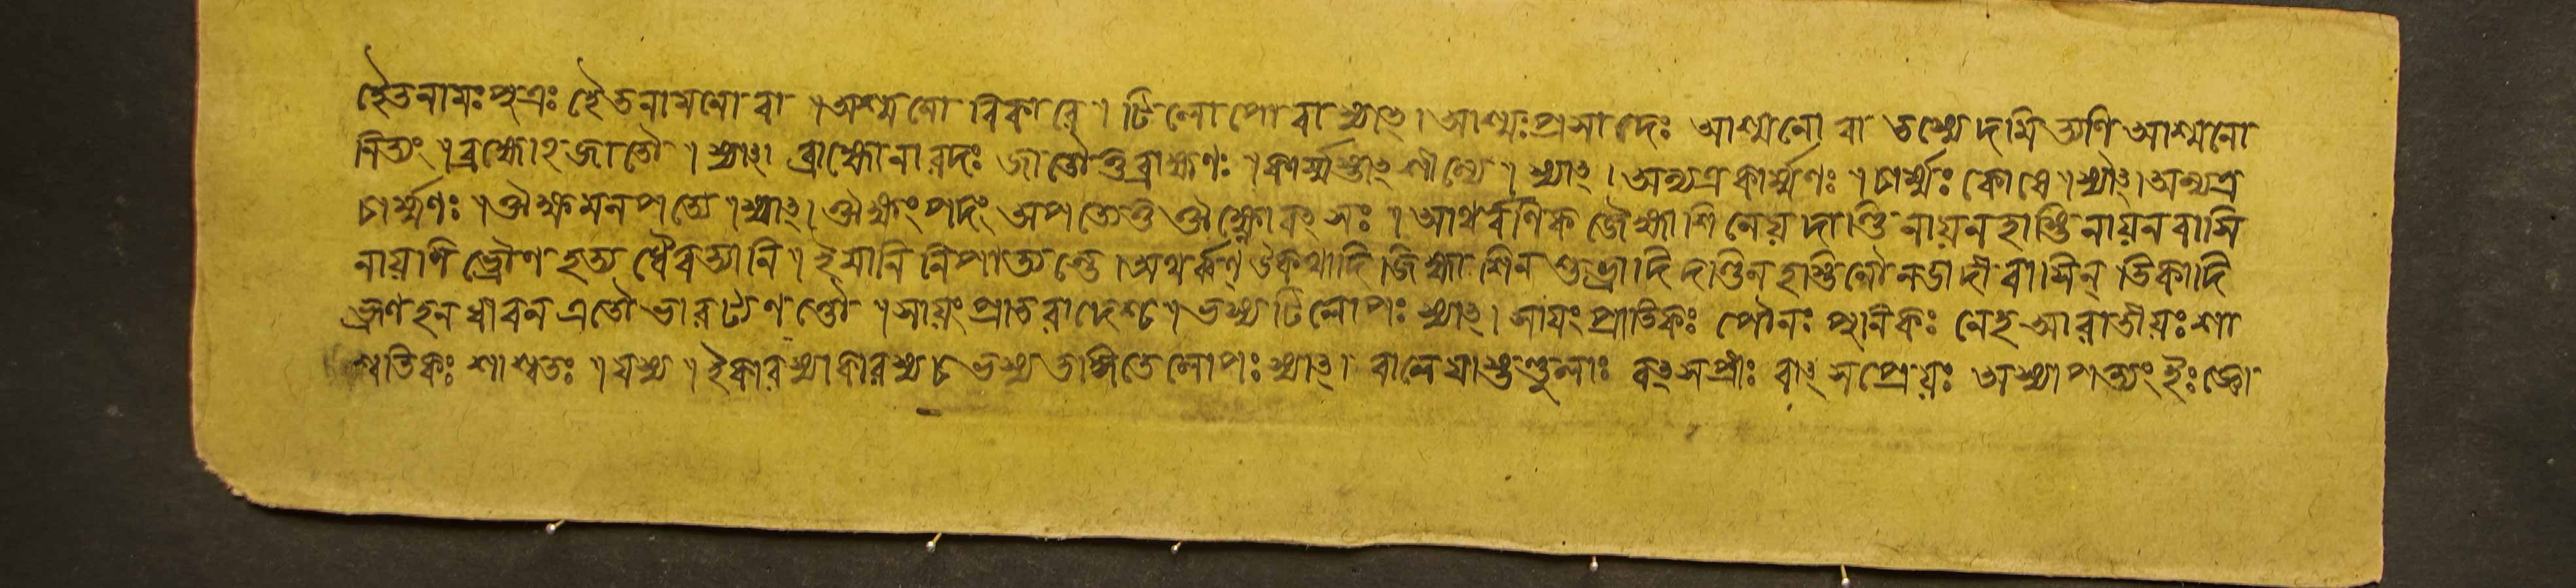 হৈতনামঃ পুত্রঃ হৈতনামনো বা । অশ্মনো বিকারে । টিলোপো বা স্যাৎ । আশ্মঃ প্রাসাদেঃ আশ্মনো বা ভস্মেদমিত্যণি আশ্মনো
নিত্যং । ব্রাহ্মোঽজাতৌ । স্যাৎ । ব্রাহ্মো নারদঃ জাতৌ তু ব্রাহ্মণঃ । কার্ম্মস্তাৎশীল্যে । স্যাৎ । অন্যত্র কার্ম্মণঃ । চার্ম্মঃ কোষে । স্যাৎ । অন্যত্র
চার্ম্মণঃ । ঔক্ষমনপত্যে । স্যাৎ । ঔক্ষং পদং অপত্যে তু ঔক্ষ্ণো বৎসঃ । আথর্ব্বণিক জৈহ্মাশিনেয় দাণ্ডিনায়ন হাস্তিনায়ন বাসি
নায়ণি ভ্রৌণহত্য ধৈবত্যানি । ইমানি নিপাত্যন্তে । অথর্ব্বণ্ উক্থাদি জিহ্মাশিন শুভ্রাদি দণ্ডিন হস্তিনৌ নডাদী বাসিন্ তিকাদি
ভ্রূণহন ধীবন এতৌ ভারট্যণন্তৌ । সায়ংপ্রাতরাদেশ্চ । ভস্য টিলোপঃ স্যাৎ । সায়ং প্রাতিকঃ পৌনঃ পুনিকঃ নেহ আরাতীয়ঃ শা
শ্বতিকঃ শাশ্বতঃ । যস্য । ইকারস্যাকারস্য চ ভস্য তদ্ধিতে লোপঃ স্যাৎ । বালেযাস্তণ্ডুলাঃ বৎসপ্রীঃ বাৎসপ্রেয়ঃ অস্যাপত্যং ইঃ